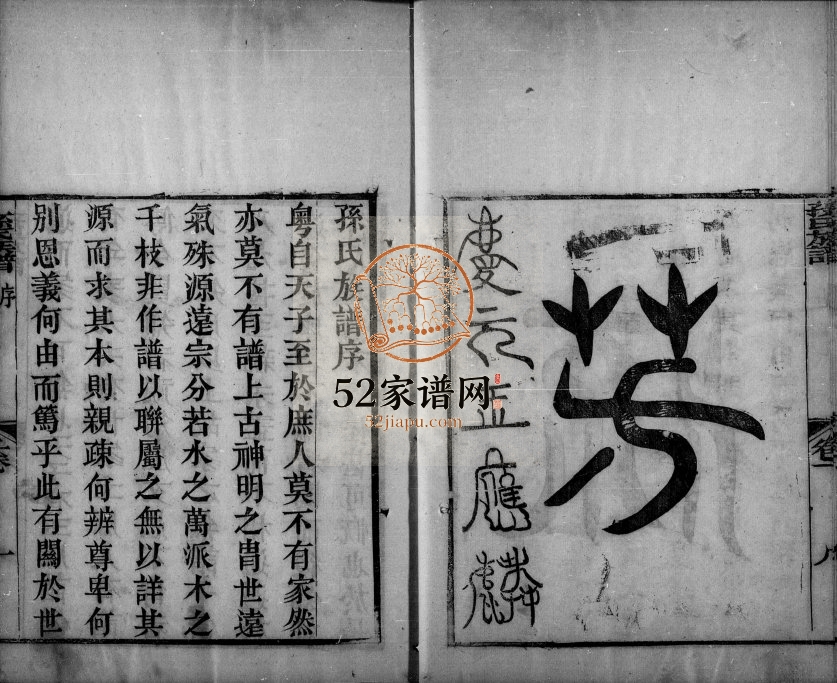 孫氏族譜
卷一
芳
慶元
應麟
孫氏族譜序
粵自天子至於庶人莫不有家然
亦莫不有譜上古神明之胄世遠
氣殊源遠宗分若水之萬派木之
千枝非作譜以聯屬之無以詳其
源而求其本則親疎何辨尊卑何
別恩義何由而篤乎此有關於世
孫氏族譜
序
卷
一
52家谱网
52jiapu.com